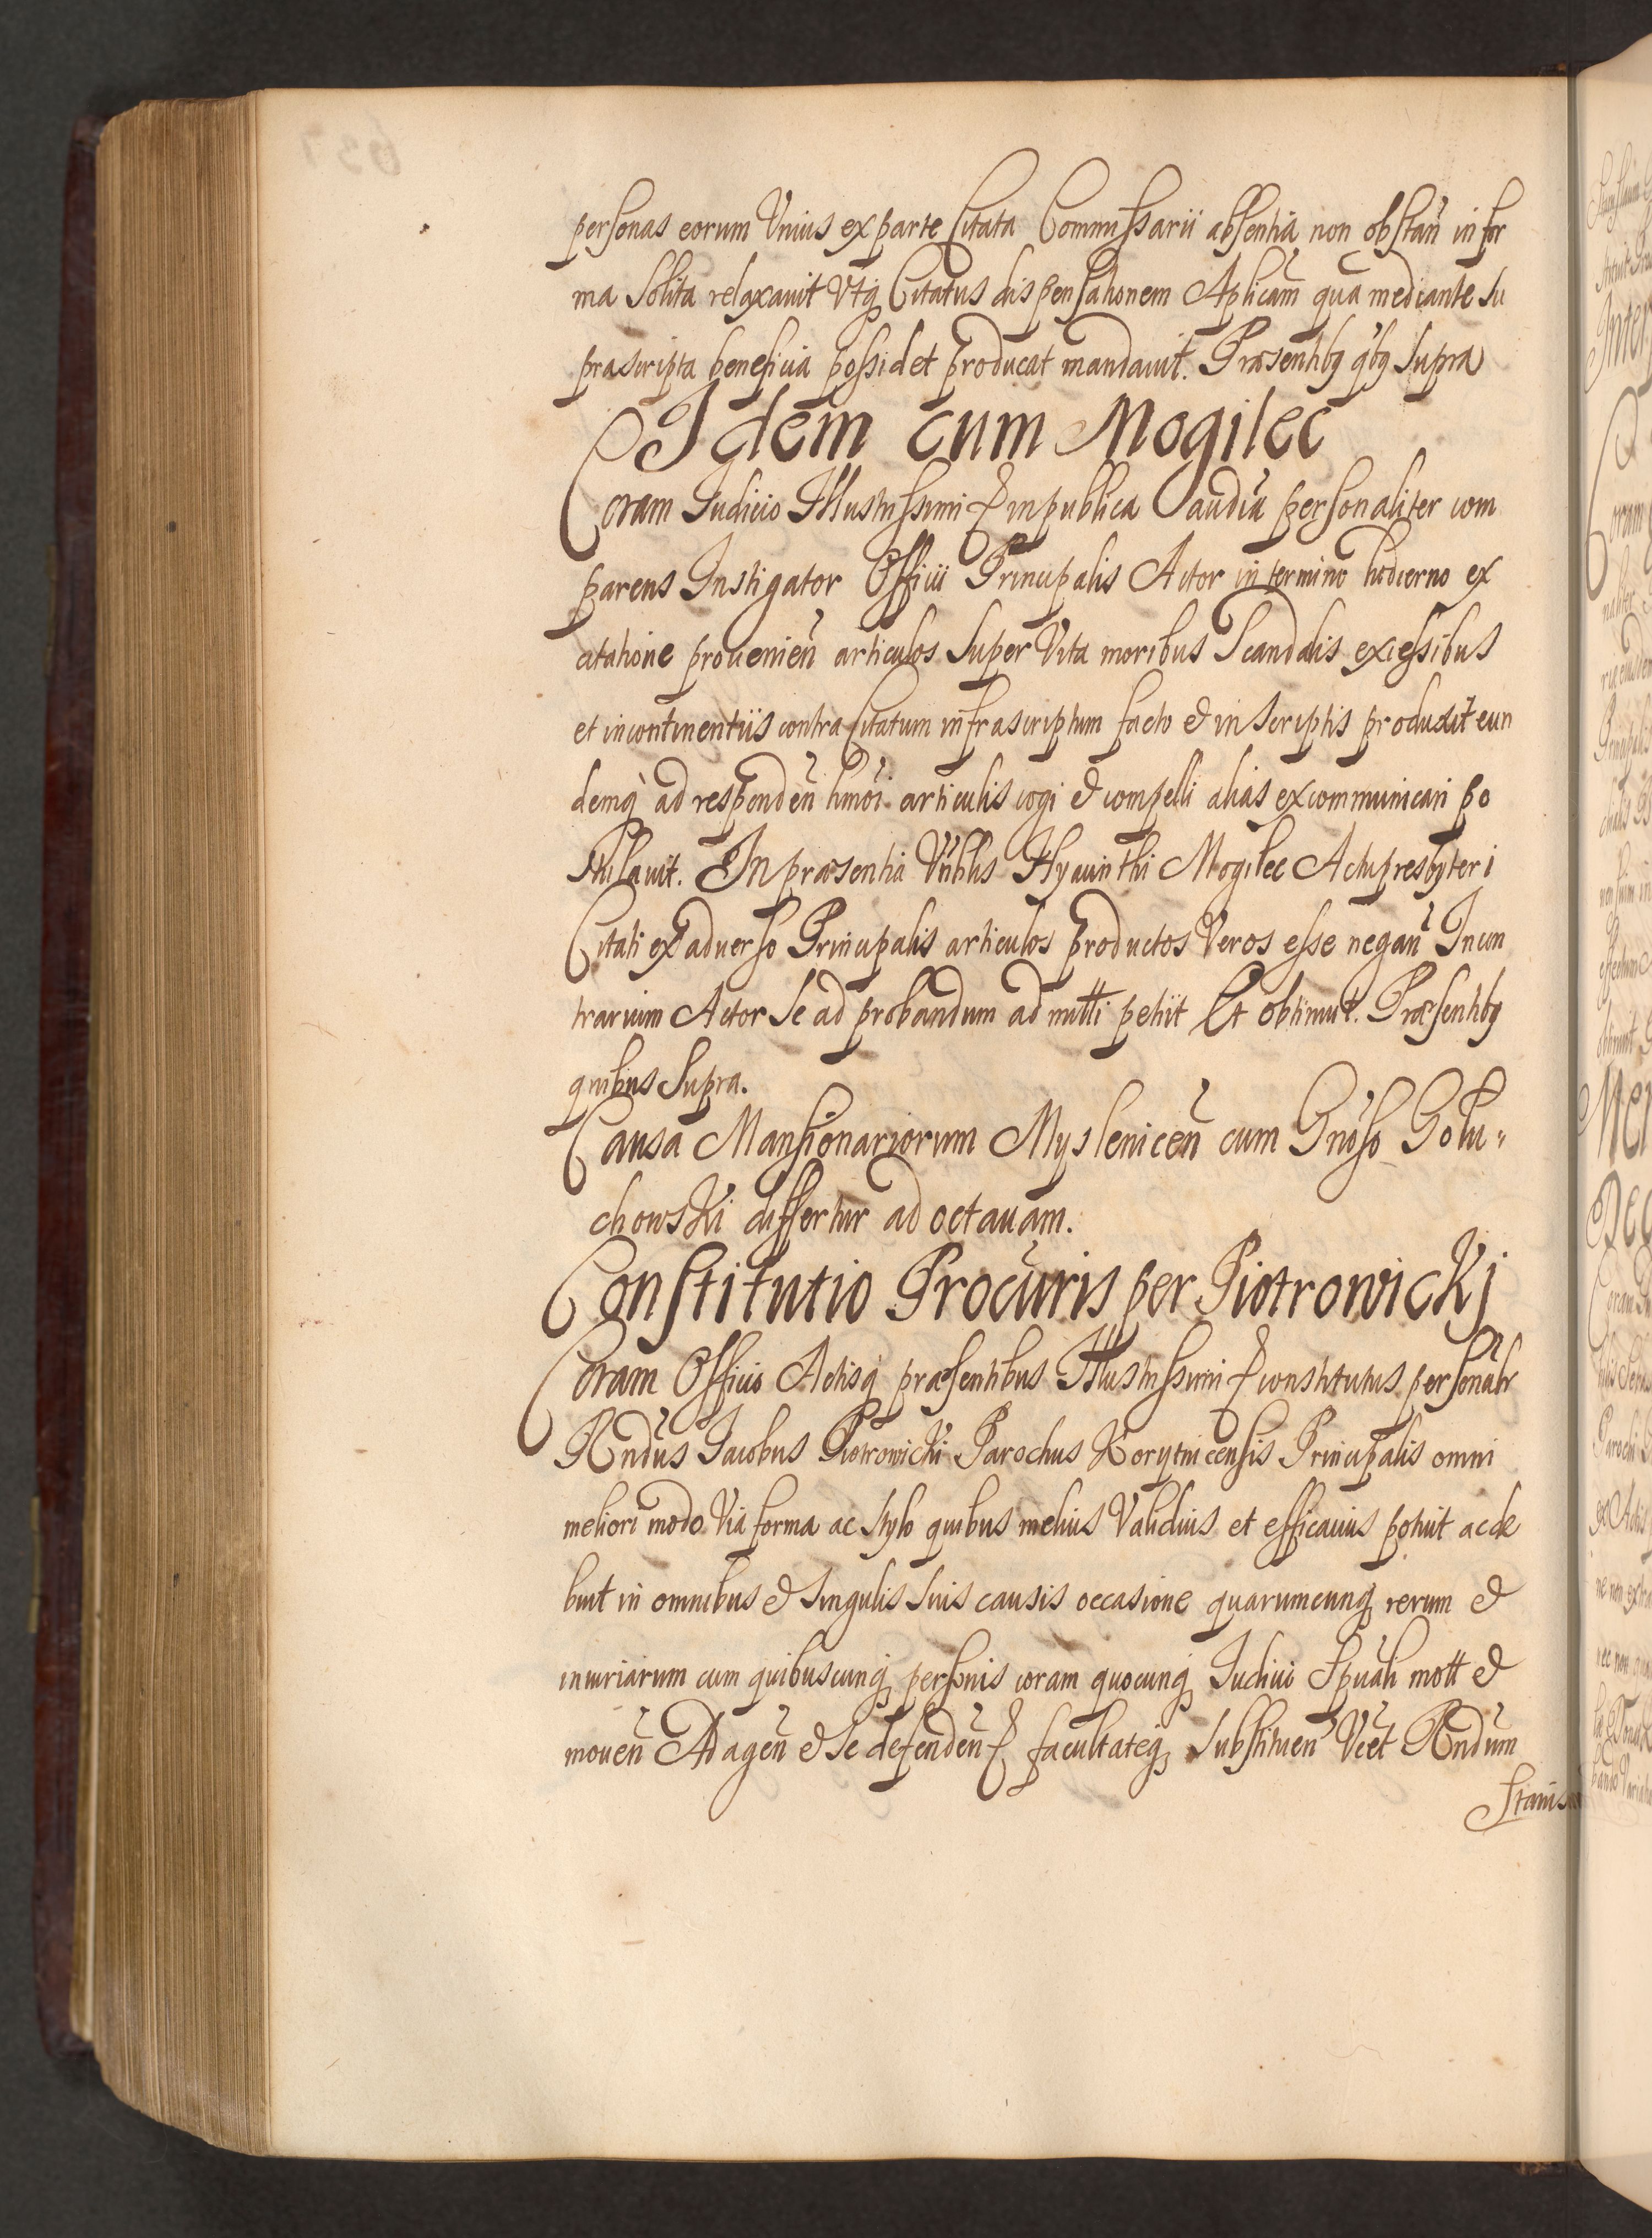 personas eorum Vnius ex parte Citata Commissarii absentia non obstan̄ in for
ma Solita relaxauit Vtq Citatus dispensationem Aplicam̄ qua mediante Su
prascripta beneficia possidet producat mandauit. Præsentibq qbq Supra
Idem cum Mogilec
Coram Iudicio Illustrissimi & in publica Caudia personaliter com
parens Instigator Officii Principalis Actor in termino hodierno ex
citatione prouenien̄ articulos Super Vita moribus Scandalis excessibus
et incontinentiis contra Citatum infrascriptum facto & in Scriptis produxit eun
demq ad responden̄ hmōi articulis cogi & compelli alias excommunicari po
stulauit. In præsentia Vnblis Hyacinthi Mogilec Actu presbyteri
Citati ex aduerso Principalis articulos productos Veros esse negan̄ In con
trarium Actor Se ad probandum admitti petiit Et obtinuit. Præsentibq
quibus Supra.
Causa Mansionariorum Myslenicen̄ cum Gnōso Golu„
chowski differtur ad octauam.
Constitutio Procuris per Piotrowickj
Coram Officio Actisq præsentibus Illustrissimi & constitutus personalr
Rndus Iacobus Piotrowicki Parochus Korytnicensis Principalis omni
meliori modo Via forma ac stylo quibus melius Validius et efficacius potuit ac de
buit in omnibus & Singulis Suis causis occasione quarumcunq rerum &
iniuriarum cum quibuscunq personis coram quocunq Iudicio Spuali mott &
mouen̄ Ad agen̄ & Se defenden̄ & facultateq Substituen̄ Vcet Rndum
Stanis